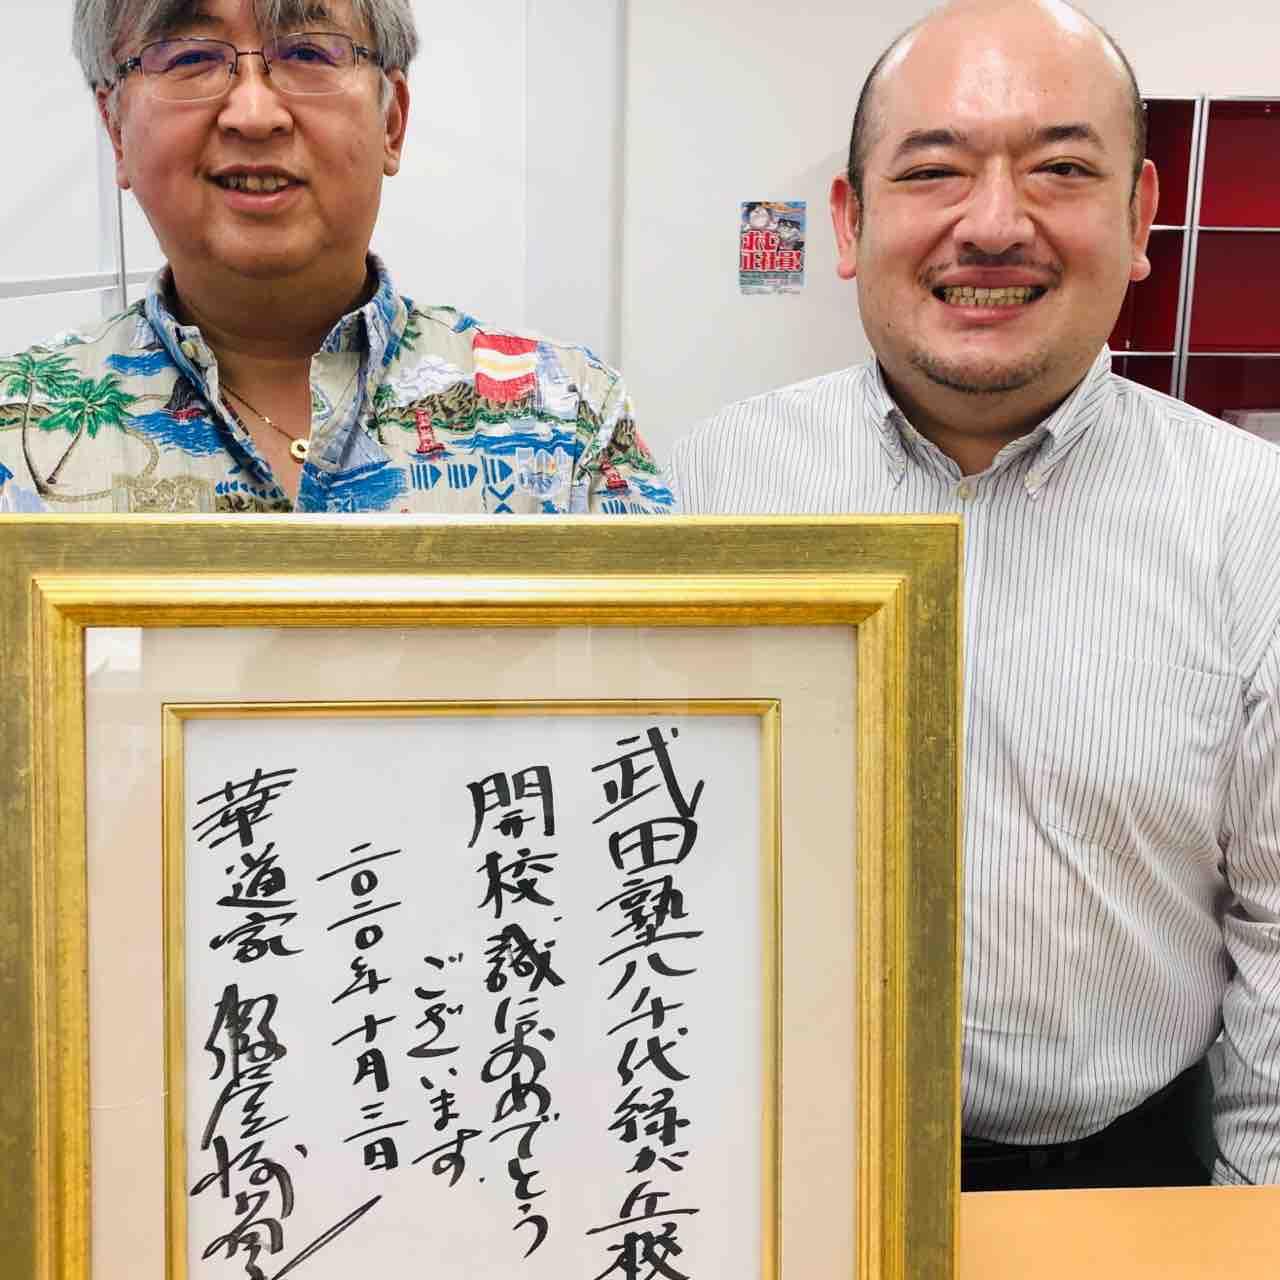 求む
正社員!
武田塾八千代緑が丘校
開校、誠におめでとう
ございます.
二〇二〇年十月三日
華道家 假屋崎省吾